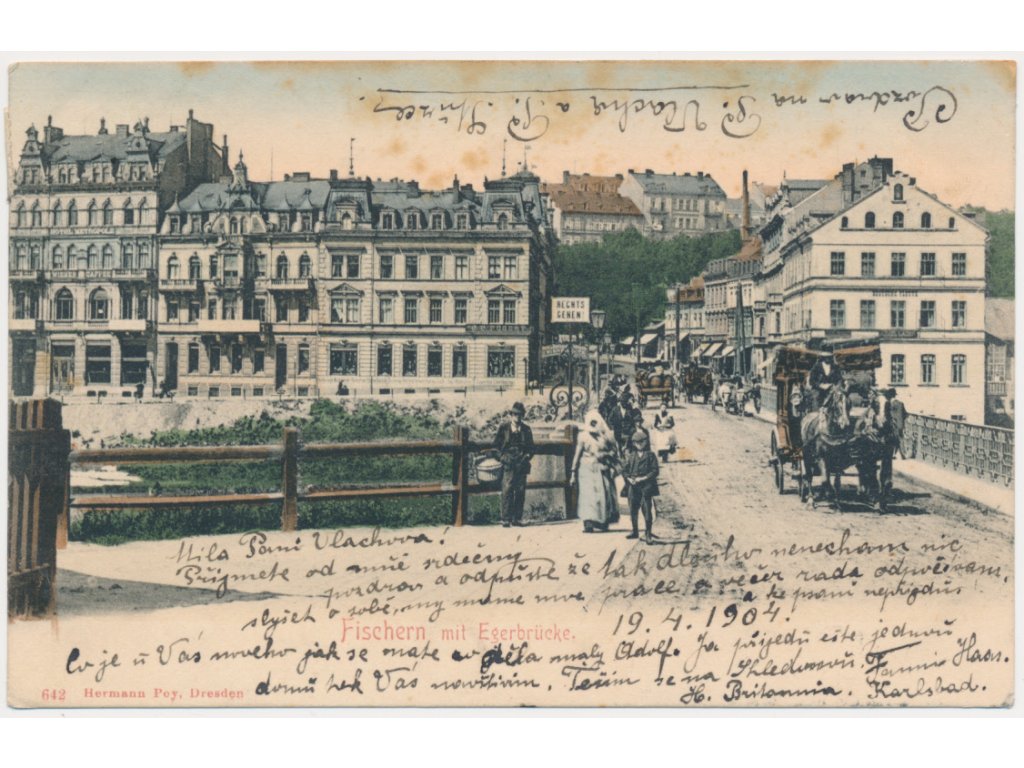 Pozdrav na P. Vlacha a P.
HOTEL METROPOLE
WIENER CAFFEE
RECHTS
GEHEN
Mila Pani Vlachova!
Přijmete od mně srdečný
pozdrav a odpusťte že tak dlouho nenecham nic
slyšet o sobě, my mame moc prace a večer rada odpočívam,
a ke psaní nepřijdu
19. 4. 1904.
Fischern mit Egerbrücke.
Co je u Vás noveho jak se mate co děla maly Adolf. Ja přijedu ešte jednou
domu tak Vás navštivim. Těšim se na Shledanou. Fanni Haas.
H. Britannia. Karlsbad.
642 Hermann Poy, Dresden